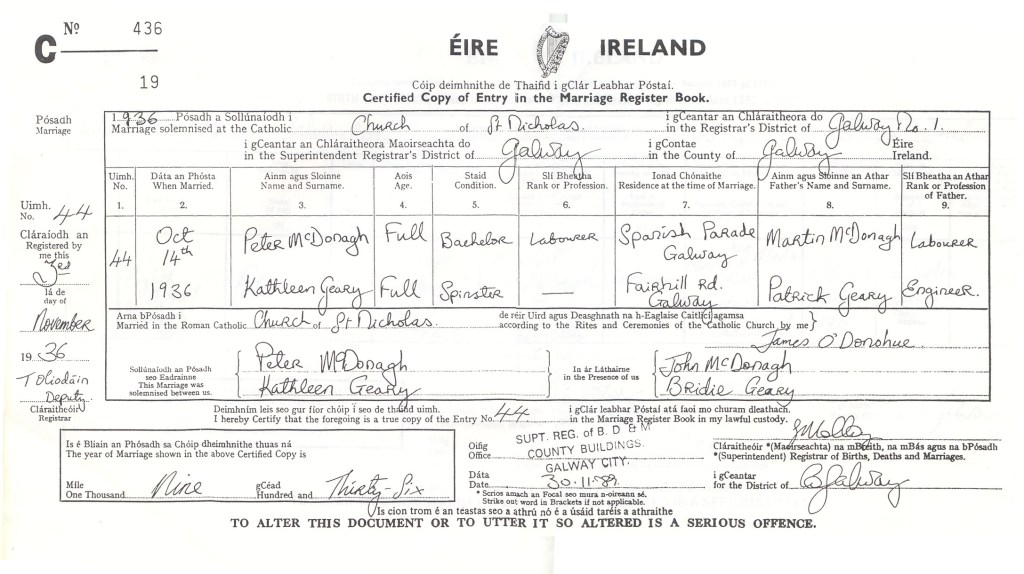 C Nº 436
19
ÉIRE IRELAND
Cóip deimhnithe de Thaifid i gClár Leabhar Póstaí.
Certified Copy of Entry in the Marriage Register Book.
Pósadh
Marriage
1936 Pósadh a Sollúnaíodh i
Marriage solemnised at the Catholic Church of St Nicholas.
i gCeantar an Chláraitheora do
in the Registrar's District of Galway No. 1.
i gCeantar an Chláraitheora Maoirseachta do
in the Superintendent Registrar's District of Galway
i gContae
in the County of Galway
Éire
Ireland.
Uimh. No. Dáta an Phósta When Married. Ainm agus Sloinne Name and Surname. Aois Age. Staid Condition. Slí Bheatha Rank or Profession Ionad Chónaithe Residence at the time of Marriage. Ainm agus Sloinne an Athar Father's Name and Surname. Slí Bheatha an Athar Rank or Profession of Father.
1. 2. 3. 4. 5. 6. 7. 8. 9.
Uimh. No. 44
Cláraíodh an
Registered by
me this
3rd
lá de
day of
November
19 36
T Oliodáin
Deputy
Cláraitheóir
Registrar
44 Oct 14th 1936
Peter McDonagh Full Bachelor Labourer Spanish Parade Galway Martin McDonagh Labourer
Kathleen Geary Full Spinster — Fairhill Rd. Galway Patrick Geary Engineer.
Arna bPósadh i
Married in the Roman Catholic Church of St Nicholas.
de réir Uird agus Deasghnath na h-Eaglaise Caitlicí agamsa
according to the Rites and Ceremonies of the Catholic Church by me
James O'Donohue.
Sollúnaíodh an Pósadh
seo Eadrainne
This Marriage was
solemnised between us.
Peter McDonagh
Kathleen Geary
In ár Láthairne
in the Presence of us
John McDonagh
Bridie Geary
Deimhním leis seo gur fíor chóip i seo de thaifid uimh.
I hereby Certify that the foregoing is a true copy of the Entry No. 44
i gClár leabhar Póstaí atá faoi mo churam dleathach.
in the Marriage Register Book in my lawful custody.
Is é Bliain an Phósadh sa Chóip dheimhnithe thuas ná
The year of Marriage shown in the above Certified Copy is
Míle
One Thousand Nine
gCéad
Hundred and Thirty Six
Oifig
Office
SUPT. REG. of B. D & M
COUNTY BUILDINGS.
GALWAY CITY.
Dáta
Date 30.11.89.
* Scrios amach an Focal seo mura n-oireann sé.
Strike out word in Brackets if not applicable.
Cláraitheóir *(Maoirseachta) na mBreith, na mBás agus na bPósadh
*(Superintendent) Registrar of Births, Deaths and Marriages.
i gCeantar
for the District of Galway
Is cion trom é an teastas seo a athrú nó é a úsáid taréis a athraithe
TO ALTER THIS DOCUMENT OR TO UTTER IT SO ALTERED IS A SERIOUS OFFENCE.